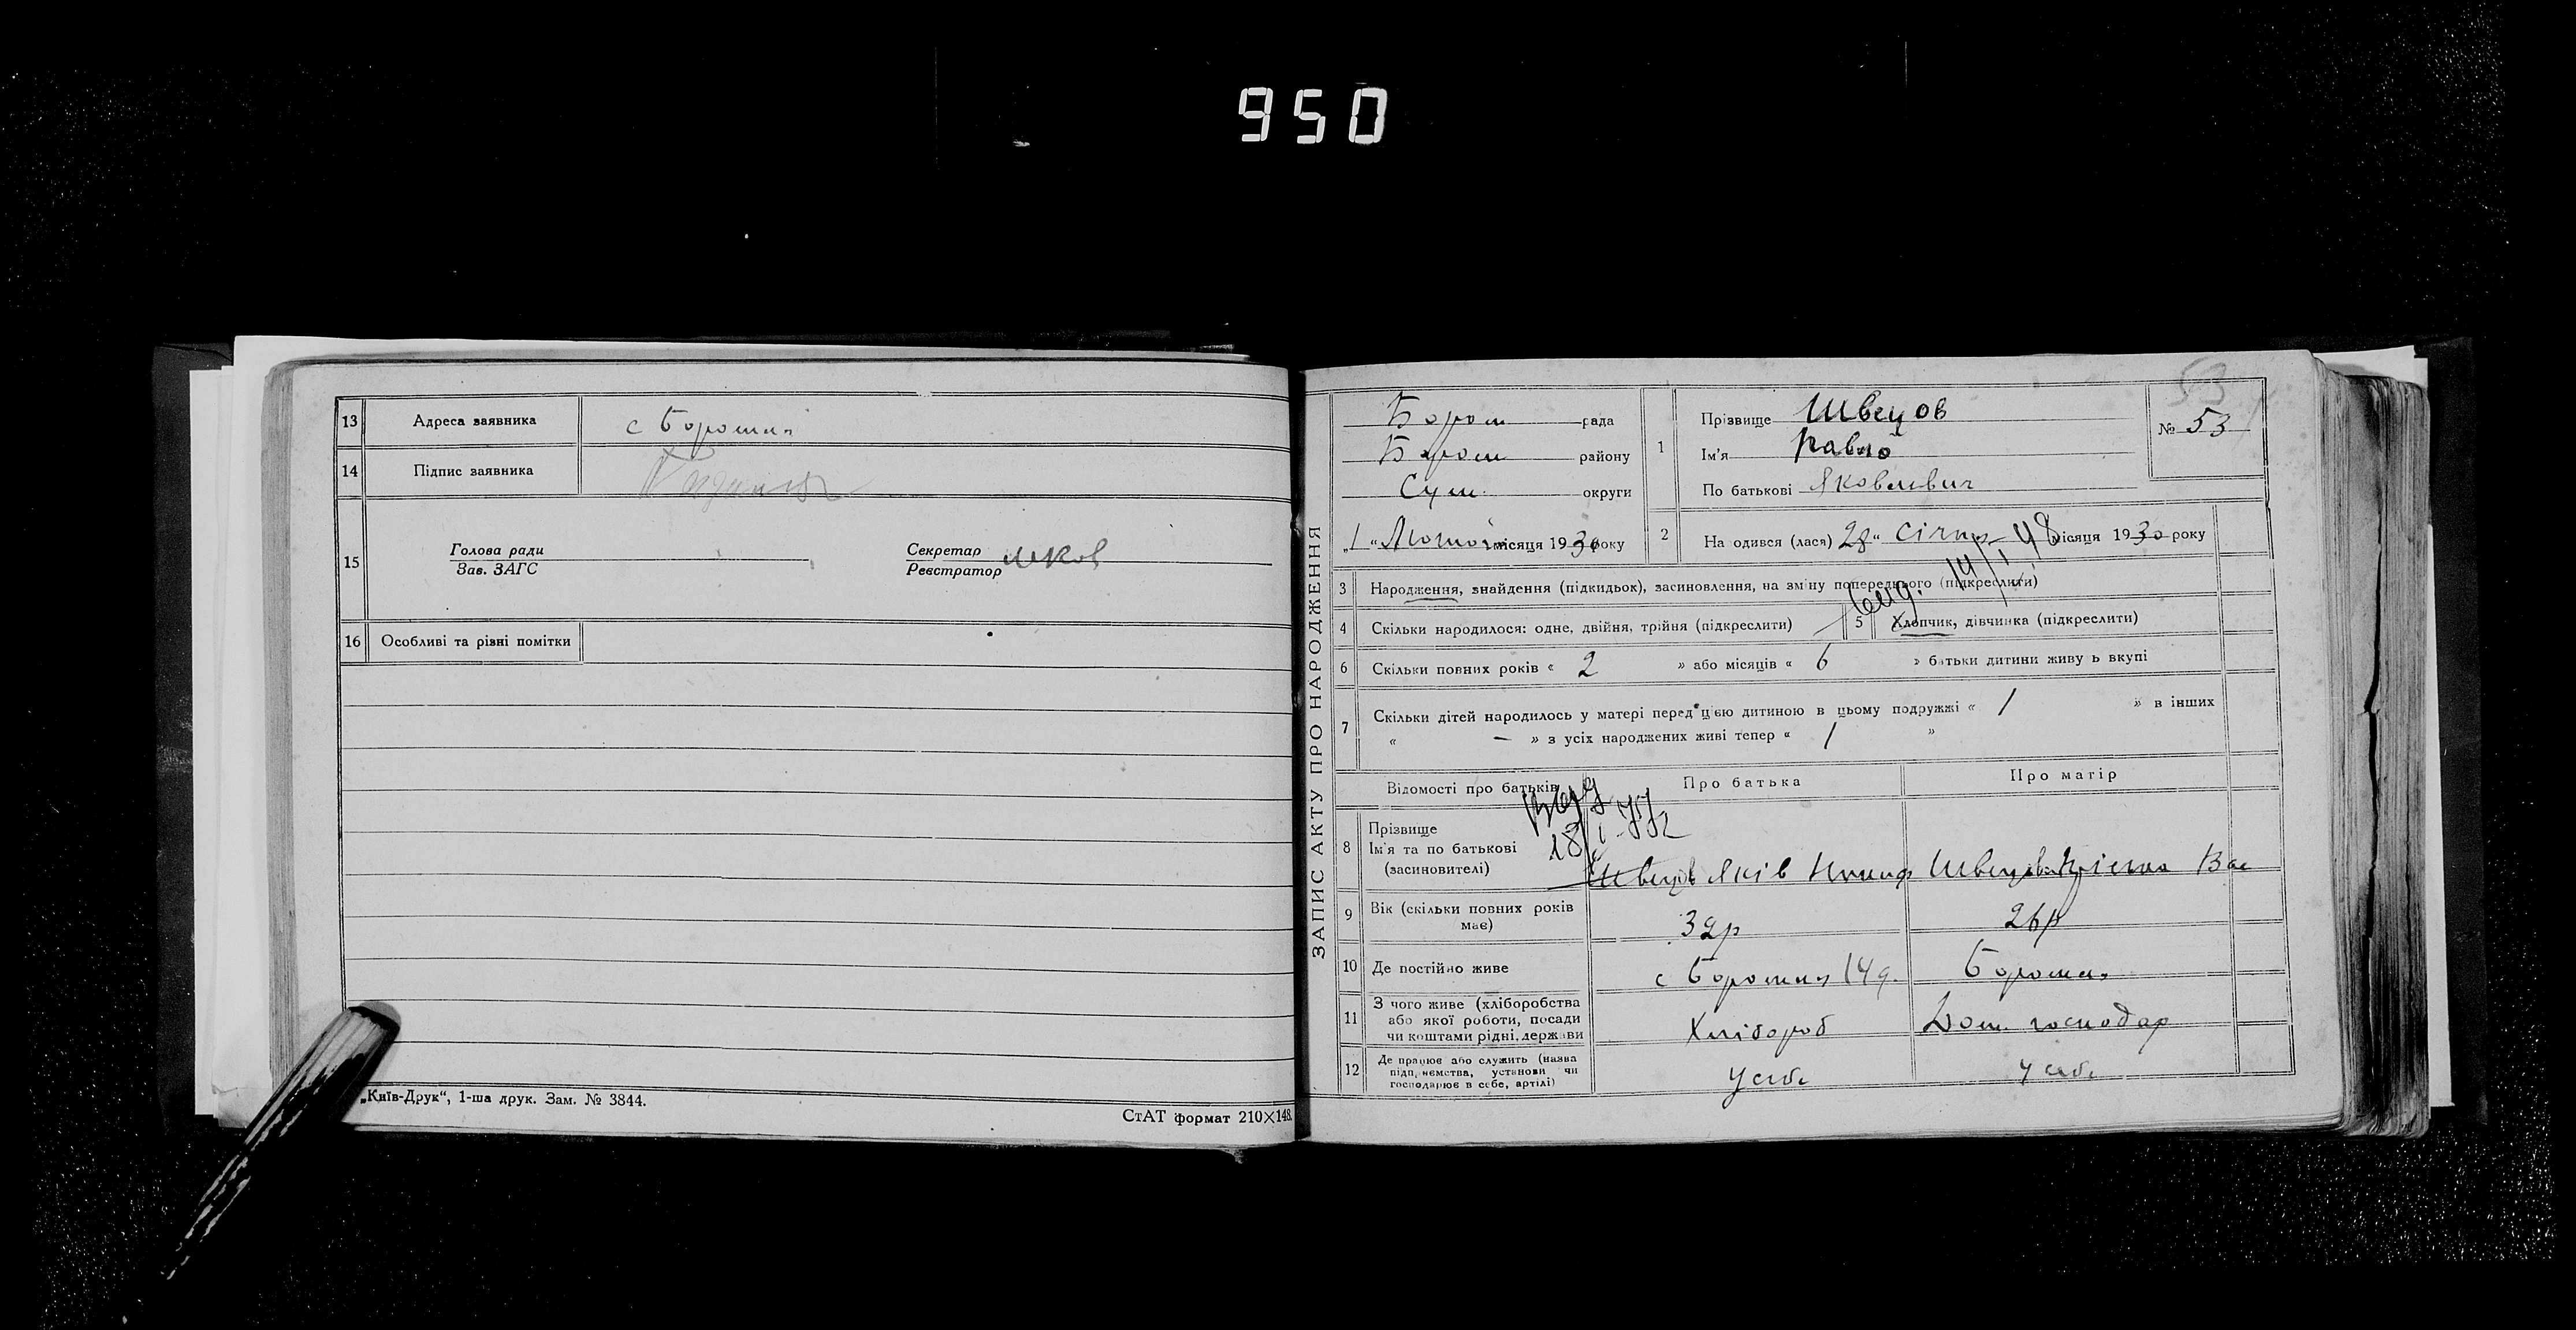 950
13 Адреса заявника с Боромля
14 Підпис заявника
15 Голова ради
Зав. ЗАГС
Секретар
Реєстратор
16 Особливі та рівні помітки
„Київ-Друк“, 1-ша друк. Зам. № 3844.
СтАТ формат 210×148.
ЗАПИС АКТУ ПРО НАРОДЖЕННЯ
53
Бором рада
Бором району
Сум округи
„1“ Лютого місяця 1930 року
1 Прізвище Швецов
Ім'я Павло
По батькові Яковлевич
№ 53
2 На одився (лася) 28“ січня місяця 1930 року
14/I 48
3 Народження, знайдення (підкидьок), засиновлення, на зміну попереднього (підкреслити)
4 Скільки народилося: одне, двійня, трійня (підкреслити)
5 Хлопчик, дівчинка (підкреслити)
6 Скільки повних років « 2 » або місяців « 6 » батьки дитини живу ь вкупі
7 Скільки дітей народилось у матері перед цією дитиною в цьому подружжі « 1 » в інших
« — » з усіх народжених живі тепер « 1 »
Відомості про батьків Про батька Про матір
8 Прізвище
Ім'я та по батькові
(засиновителі)
Швецов Яків Швецова Вас
9 Вік (скільки повних років
має)
32р 26р
10 Де постійно живе с Боромля Боромля
11 З чого живе (хліборобства
або якої роботи, посади
чи коштами рідні, держави
Хлібороб Дом. господар
12 Де працює або служить (назва
підп, иємства, установи чи
господарює в себе, артілі)
У себе у себе